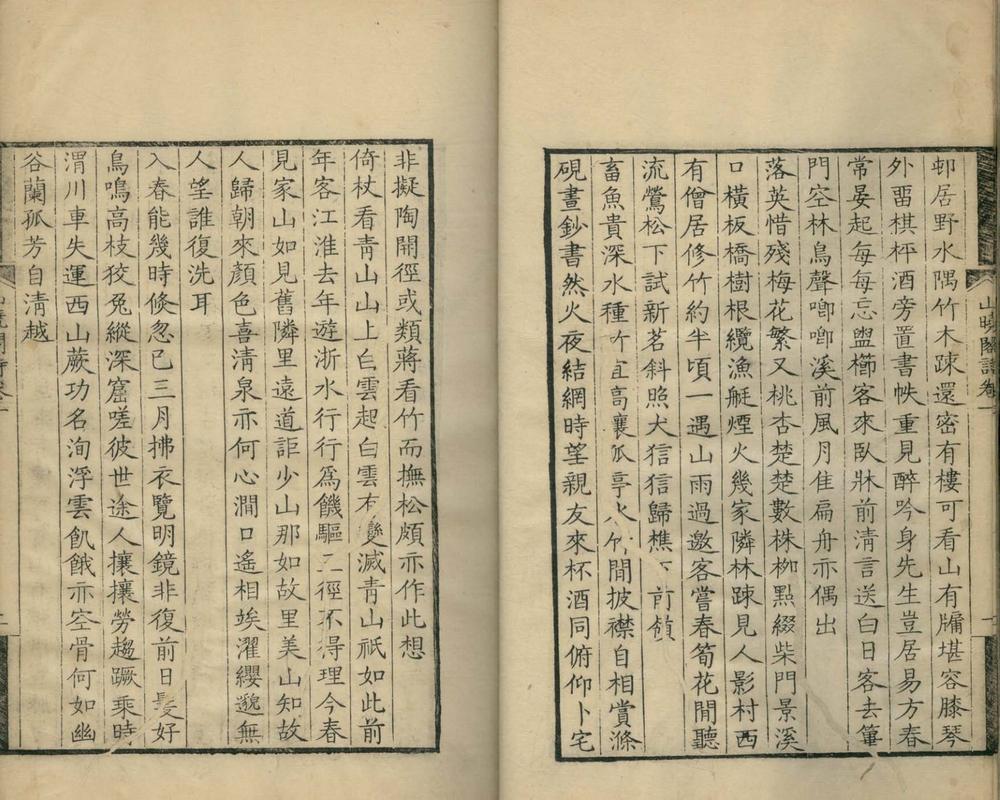 邨居野水隅竹木疎還密有樓可看山有牖堪容膝琴
外畱棋枰酒旁置書帙重見醉吟身先生豈居易方春
常晏起每每忘盥櫛客來臥牀前淸言送白日客去篳
門空林鳥聲喞喞溪前風月佳扁舟亦偶出
落英惜殘梅花繁又桃杏楚楚數株栁點綴柴門景溪
口橫板橋樹根纜漁艇煙火幾家隣林疎見人影村西
有僧居修竹約半頃一遇山雨過邀客嘗春筍花閒聽
流鶯松下試新茗斜照犬信信歸樵下前嶺
畜魚貴深水種竹宜高襄亭火閒披襟自相賞滌
硯晝鈔書然火夜結網時望親友來杯酒同俯仰卜宅
山曉閣詩卷一
非擬陶開徑或類蔣看竹而撫松頗亦作此想
倚杖看靑山山上白雲起白雲有變滅靑山祇如此前
年客江淮去年遊浙水行行爲饑驅三徑不得理今春
見家山如見舊隣里遠道詎少山那如故里美山知故
人歸朝來顏色喜淸泉亦何心澗口遙相竢濯纓邈無
人望誰復洗耳
入春能幾時倏忽已三月拂衣覽明鏡非復前日髮好
鳥鳴高枝狡兔縱深窟嗟彼世途人攘攘勞趨蹶乘時
渭川車失運西山蕨功名洵浮雲飢餓亦空骨何如幽
谷蘭孤芳自淸越